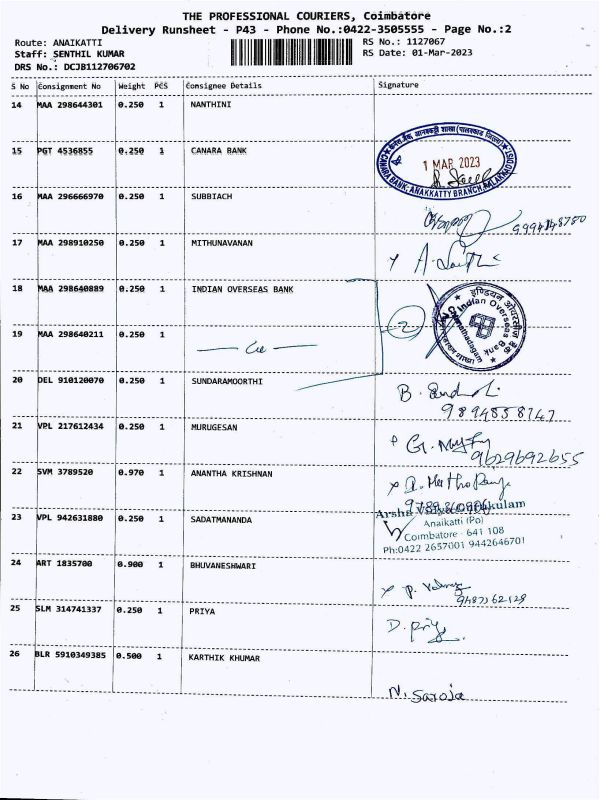 THE PROFESSIONAL COURIERS, Coimbatore
Delivery Runsheet - P43 - Phone No.:0422-3505555 - Page No.:2
Route: ANAIKATTI RS No.: 1127067
Staff: SENTHIL KUMAR RS Date: 01-Mar-2023
DRS No.: DCJB112706702
S No Consignment No Weight PCS Consignee Details Signature
14 MAA 298644301 0.250 1 NANTHINI
15 PGT 4536855 0.250 1 CANARA BANK
केनरा बैंक, आनकट्टी शाखा (पालक्काड जिला)
1 MAR 2023
CANARA BANK, ANAKKATTY BRANCH, PALAKKAD DIST.
16 MAA 296666970 0.250 1 SUBBIACH
9994148750
17 MAA 298910250 0.250 1 MITHUNAVANAN
18 MAA 298640889 0.250 1 INDIAN OVERSEAS BANK
2
इण्डियन ओवरसीज़ बैंक
Indian Overseas Bank
19 MAA 298640211 0.250 1
20 DEL 910120070 0.250 1 SUNDARAMOORTHI
9894858747
21 VPL 217612434 0.250 1 MURUGESAN
9629692655
22 SVM 3789520 0.970 1 ANANTHA KRISHNAN
23 VPL 942631880 0.250 1 SADATMANANDA
Anaikatti (Po)
Coimbatore - 641 108
Ph:0422 2657001 9442646701
24 ART 1835700 0.900 1 BHUVANESHWARI
9487362129
25 SLM 314741337 0.250 1 PRIYA
D. Priy
26 BLR 5910349385 0.500 1 KARTHIK KHUMAR
N. Saroja